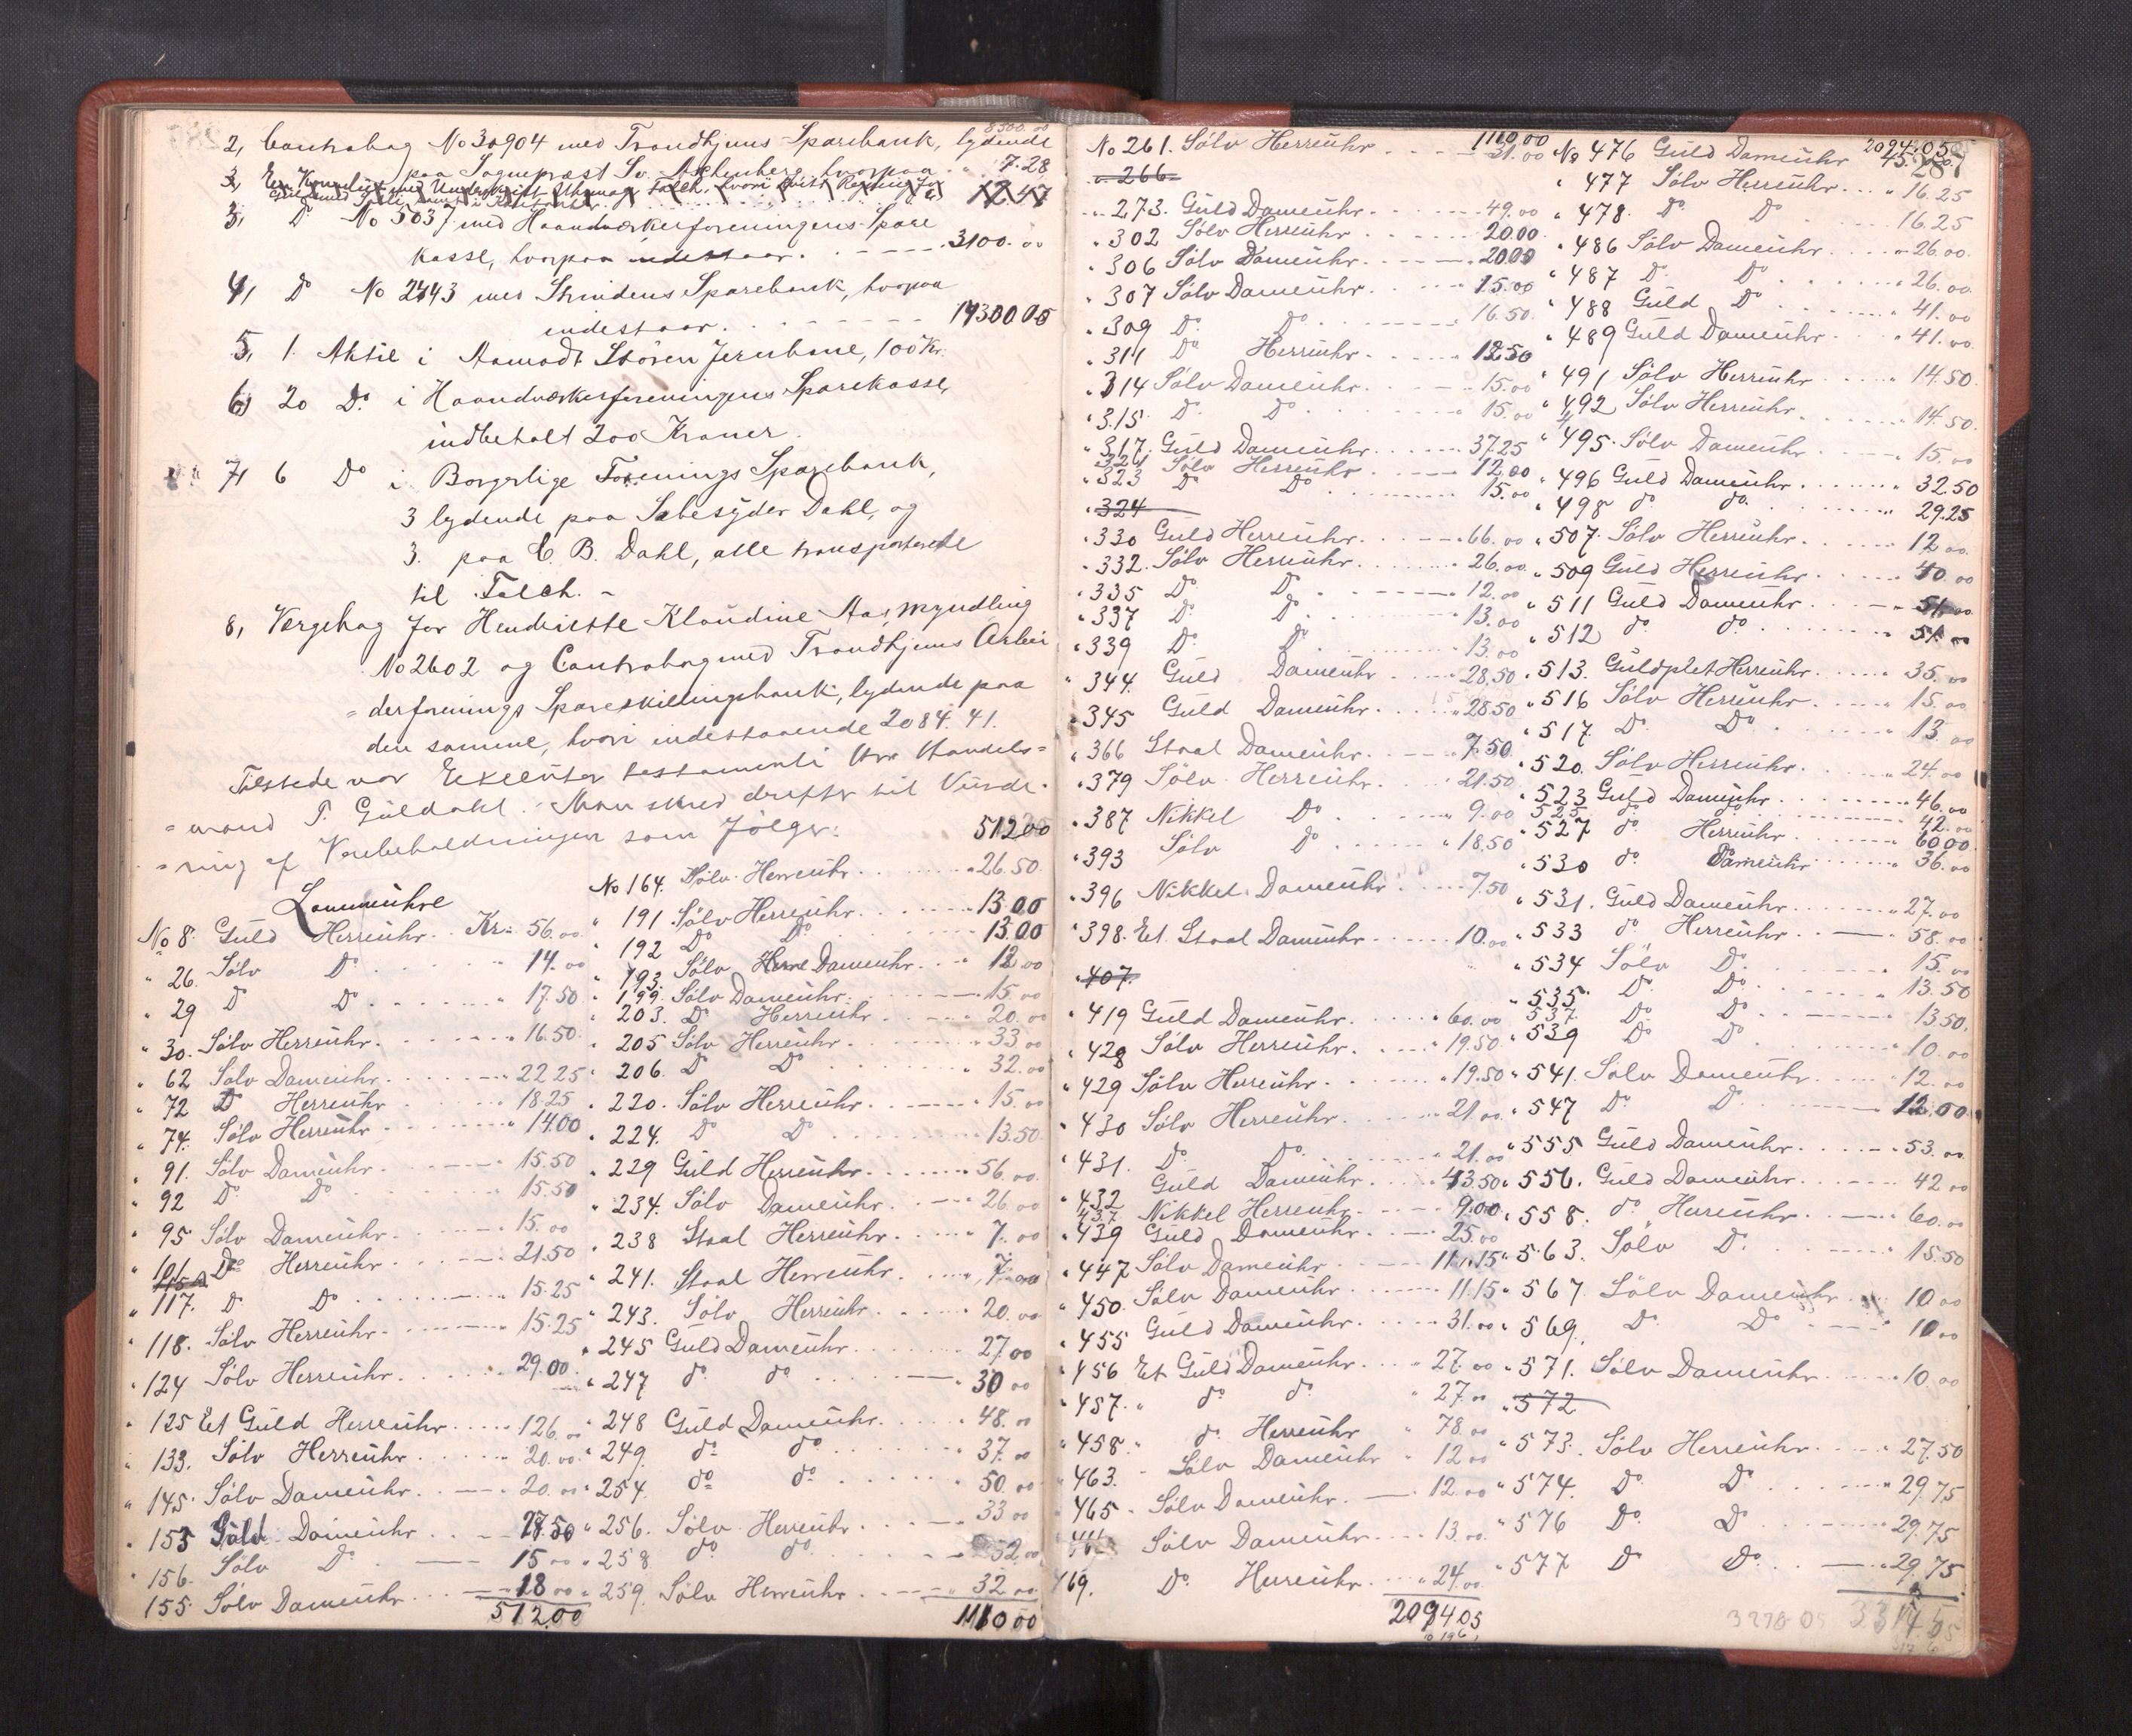 8300.00
2, Contrabog No 30904 med Trondhjems Sparebank, lydende
paa Sogneprest Sv. Aschenberg, hvorpaa 7.28
12.47
3, Do No 5037 med Haandværkerforeningens Spare
kasse, hvorpaa indestaar. 3100.00
4, Do No 2443 med Strindens Sparebank, hvorpaa
indestaar.
5, 1 Aktie i Aamodt Støren Jernbane, 100 Kr.
6) 20 Do. i Haandværkerforeningens Sparekasse,
indbetalt 200 Kroner.
7, 6 Do i Borgerlige Forenings Sparebank,
3 lydende paa Dahl, og
3 paa C. B. Dahl, alle transporterede
til Falch.
8, Vergebog for Hendriette Klaudine Aas, Myndling
No 2602 og Contrabog med Trondhjems Arbei
derforenings Spareskillingsbank, lydende paa
den samme, hvori indestaaende 2084.41.
Tilstede var Executor testamenti Hrr Handels=
=mand P. Guldahl. Man skred derefter til Vurde-
=ring af Varebeholdningen som følger:
Lommeuhre
No 8. Guld Herreuhr. Kr. 56.00
" 26. Sølv Do. 14.00
" 29 Do Do. 17.50
" 30. Sølv Herreuhr. 16.50
" 62 Sølv Dameuhr. 22.25
" 72 Do Herreuhr 18.25
" 74. Sølv Herreuhr 14.00
" 91. Sølv Dameuhr. 15.50
" 92 Do. Do 15.50
" 95 Sølv Dameuhr. 15.00
" 101 Do Herreuhr. 21.50
" 117. Do Do. 15.25
" 118. Sølv Herreuhr. 15.25
" 124 Sølv Herreuhr. 29.00
" 125 Et Guld Herreuhr. 126.00
" 133. Sølv Herreuhr. 20.00
" 145. Sølv Dameuhr. 20.00
" 153 Dameuhr.
" 156. Sølv Do. 15.00
155. Sølv Dameuhr. 18.00
512.00
512.00
No 164. Sølv Herreuhr. 26.50
" 191 Sølv Herreuhr. 13.00
" 192 Do Do. 13.00
" 193. Sølv Dameuhr. 12.00
" 199. Sølv Dameuhr. 15.00
" 203. Do Herreuhr 20.00
" 205 Sølv Herreuhr. 33.00
" 206. Do Do 32.00
" 220. Sølv Herreuhr. 15.00
" 224. Do Do 13.50
" 229 Guld Herreuhr. 56.00
" 234. Sølv Dameuhr. 26.00
" 238 Staal Herreuhr. 7.00
" 241. Staal Herreuhr. 7.00
" 243. Sølv Herreuhr. 20.00
" 245 Guld Dameuhr. 27.00
" 247 do do 30.00
" 248 Guld Dameuhr. 48.00
" 249. do do 37.00
" 254. do do 50.00
" 256. Sølv Herreuhr. 33.00
" 258 do do. 32.00
" 259. Sølv Herreuhr. 32.00
1110.00
1110.00
No 261. Sølv Herreuhr 31.00
" 266
" 273. Guld Dameuhr. 49.00
" 302 Sølv Herreuhr 20.00
" 306 Sølv Dameuhr. 20.00
" 307 Sølv Dameuhr. 15.00
" 309 Do. Do. 16.50
" 311 Do Herreuhr. 12.50
" 314 Sølv Dameuhr. 15.00
" 315. Do. Do. 15.00
" 317. Guld Dameuhr. 37.25
321 Sølv Herreuhr 12.00
" 323 Do Do. 15.00
" 324
" 330 Guld Herreuhr. 66.00
" 332. Sølv Herreuhr 26.00
" 335 Do. Do. 12.00
" 337 Do. Do. 13.00
" 339 Do. Do. 13.00
" 344. Guld Dameuhr 28.50
" 345 Guld Dameuhr. 28.50
" 366 Staal Dameuhr. 7.50
" 379 Sølv Herreuhr. 21.50
" 387 Nikkel Do. 9.00
" 393 Sølv Do. 18.50
" 396 Nikkel Dameuhr 7.50
" 398. Et Staal Dameuhr 10.00
" 407.
" 419 Guld Dameuhr. 60.00
" 428 Sølv Herreuhr. 19.50
" 429 Sølv Herreuhr. 19.50
" 430 Sølv Herreuhr. 21.00
" 431. Do. Do. 21.00
" 432 Guld Dameuhr. 43.50
437 Nikkel Herreuhr. 9.00
" 439 Guld Dameuhr. 25.00
" 447 Sølv Dameuhr. 11.15
" 450. Sølv Dameuhr. 11.15
" 455 Guld Dameuhr. 31.00
" 456 Et Guld Dameuhr. 27.00
" 457. " do do. " 27.00
" 458 " do. Herreuhr " 78.00
" 463. Sølv Dameuhr " 12.00
" 465 Sølv Dameuhr. 12.00
Sølv Dameuhr. 13.00
469. Do. Herreuhr. 24.00
2094.05
2094.05
287
No 476 Guld Dameuhr 45.00
" 477 Sølv Herreuhr. 16.25
" 478. Do. Do. 16.25
" 486 Sølv Dameuhr. 26.00
" 487 Do. Do. 26.00
" 488 Guld Do. 41.00
" 489 Guld Dameuhr. 41.00
" 491 Sølv Herreuhr. 14.50
" 492 Sølv Herreuhr. 14.50
" 495. Sølv Dameuhr 15.00
" 496 Guld Dameuhr. 32.50
" 498 do do. 29.25
" 507. Sølv Herreuhr. 12.00
" 509 Guld Herreuhr. 40.00
" 511 Guld Dameuhr. 51.00
" 512 do do. 51.00
" 513. Guldplet Herreuhr. 35.00
" 516 Sølv Herreuhr. 15.00
" 517. Do. Do. 13.00
" 520. Sølv Herreuhr. 24.00
" 523 Guld Dameuhr. 46.00
525 do. do. 42.00
" 527 do. Herreuhr 60.00
" 530 do. Dameuhr 36.00
" 531. Guld Dameuhr. 27.00
" 533 do. Herreuhr. 58.00
" 534 Sølv Do. 15.00
" 535. Do. Do. 13.50
537. Do Do 13.50
" 539 Do Do 10.00
" 541. Sølv Dameuhr. 12.00
" 547 Do. Do. 12.00
" 555. Guld Dameuhr. 53.00
" 556. Guld Dameuhr. 42.00
" 558. do. Herreuhr. 60.00
" 563. Sølv Do. 15.50
" 567. Sølv Dameuhr. 10.00
" 569. Do. Do. 10.00
" 571. Sølv Dameuhr. 10.00
" 572
" 573. Sølv Herreuhr. 27.50
" 574. Do. Do. 29.75
" 576 Do. Do. 29.75
" 577 Do Do. 29.75
3278 05
3314.05